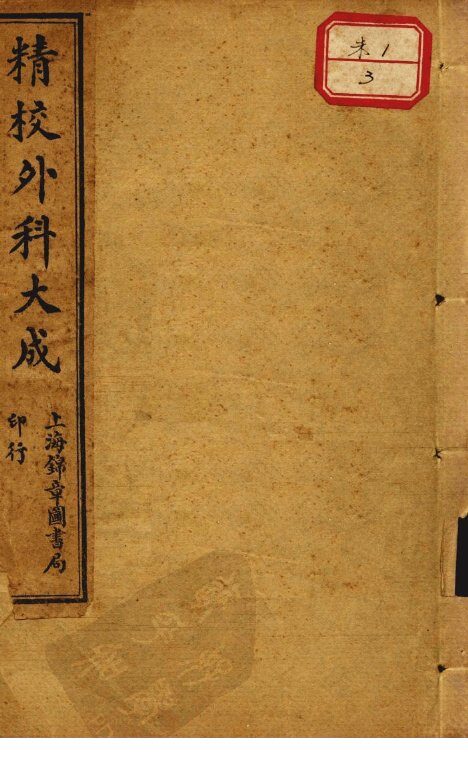 精校外科大成
上海錦章圖書局
印行
朱1
3